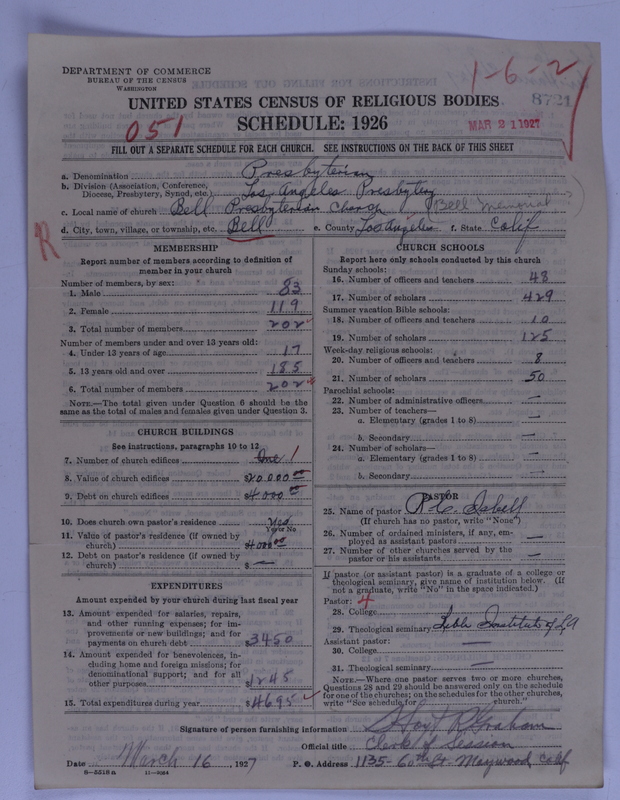 DEPARTMENT OF COMMERCE
BUREAU OF THE CENSUS
WASHINGTON
1-6-2
8721
UNITED STATES CENSUS OF RELIGIOUS BODIES
SCHEDULE: 1926
051
MAR 21 1927
FILL OUT A SEPARATE SCHEDULE FOR EACH CHURCH. SEE INSTRUCTIONS ON THE BACK OF THIS SHEET
a. Denomination Presbyterian
b. Division (Association, Conference, Diocese, Presbytery, Synod, etc.) Los Angeles Presbytery
c. Local name of church Bell Presbyterian Church (Bell Memorial)
d. City, town, village, or township, etc. Bell e. County Los Angeles f. State Calif
R
MEMBERSHIP
Report number of members according to definition of
member in your church
Number of members, by sex:
1. Male 83
2. Female 119
3. Total number of members 202
Number of members under and over 13 years old:
4. Under 13 years of age 17
5. 13 years old and over 185
6. Total number of members 202
NOTE.—The total given under Question 6 should be the
same as the total of males and females given under Question 3.
CHURCH BUILDINGS
See instructions, paragraphs 10 to 12
7. Number of church edifices One 1
8. Value of church edifices $20000.00
9. Debt on church edifices $4000.00
10. Does church own pastor's residence Yes
Yes or No
11. Value of pastor's residence (if owned by
church) $4000.00
12. Debt on pastor's residence (if owned by
church) $ —
EXPENDITURES
Amount expended by your church during last fiscal year
13. Amount expended for salaries, repairs,
and other running expenses; for im-
provements or new buildings; and for
payments on church debt $3450
14. Amount expended for benevolences, in-
cluding home and foreign missions; for
denominational support; and for all
other purposes $1245
15. Total expenditures during year $4695
CHURCH SCHOOLS
Report here only schools conducted by this church
Sunday schools:
16. Number of officers and teachers 48
17. Number of scholars 429
Summer vacation Bible schools:
18. Number of officers and teachers 10
19. Number of scholars 125
Week-day religious schools:
20. Number of officers and teachers 8
21. Number of scholars 50
Parochial schools:
22. Number of administrative officers —
23. Number of teachers—
a. Elementary (grades 1 to 8) —
b. Secondary —
24. Number of scholars—
a. Elementary (grades 1 to 8) —
b. Secondary —
PASTOR
25. Name of pastor R. C. Isbell
(If church has no pastor, write "None")
26. Number of ordained ministers, if any, em-
ployed as assistant pastors —
27. Number of other churches served by the
pastor or his assistants —
If pastor (or assistant pastor) is a graduate of a college or
theological seminary, give name of institution below. (If
not a graduate, write "No" in the space indicated.)
Pastor: 4
28. College
29. Theological seminary Bible Institute of LA
Assistant pastor:
30. College —
31. Theological seminary —
NOTE.—Where one pastor serves two or more churches,
Questions 28 and 29 should be answered only on the schedule
for one of the churches; on the schedules for the other churches,
write "See schedule for church."
Signature of person furnishing information Hoyt R Graham
Official title Clerk of Session
Date March 16, 1927 P. O. Address 1135-60th St. Maywood Calif
8-5518a 11-9064